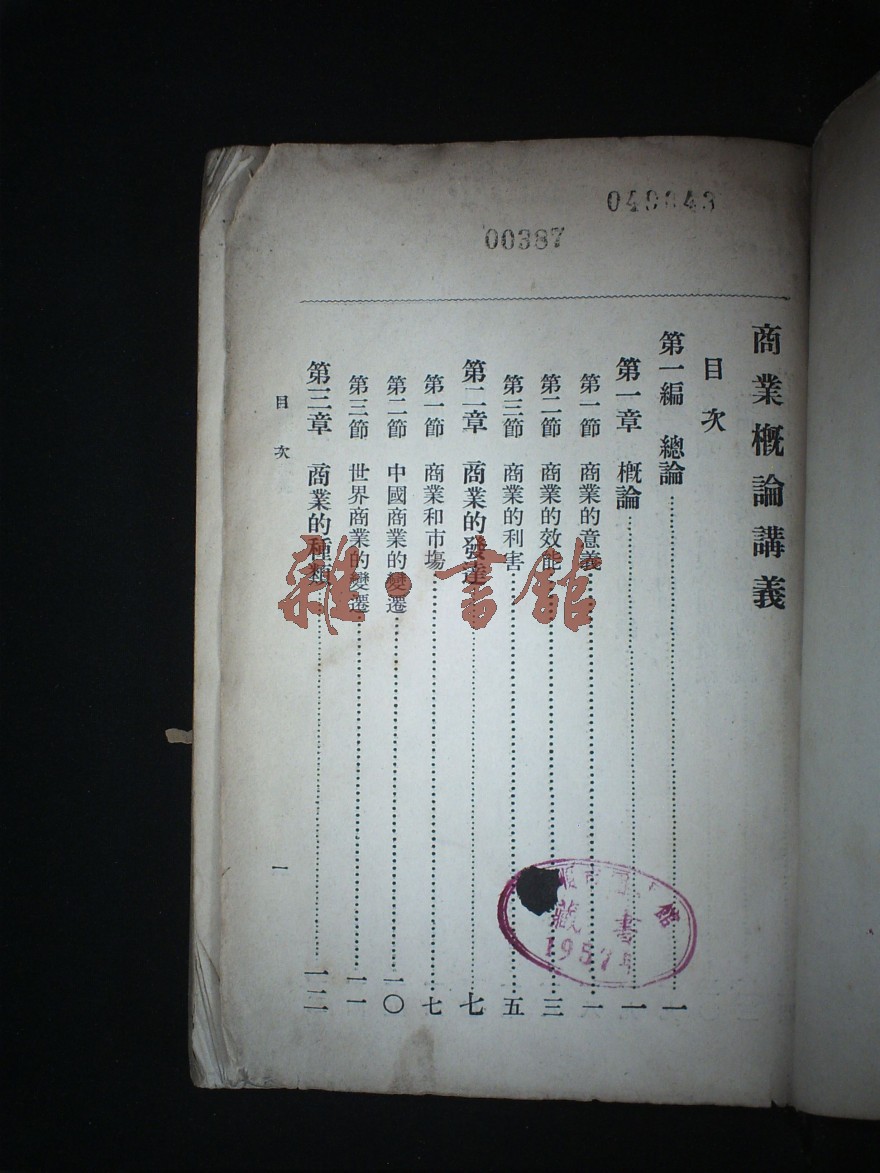 00387
商業概論講義
目次
第一編 總論 一
第一章 概論 一
第一節 商業的意義 一
第二節 商業的效能 三
第三節 商業的利害 五
第二章 商業的發達 七
第一節 商業和市場 七
第二節 中國商業的變遷 一〇
第三節 世界商業的變遷 一一
第三章 商業的種類 一二
目次
一
雜·書館
館
藏書
1957